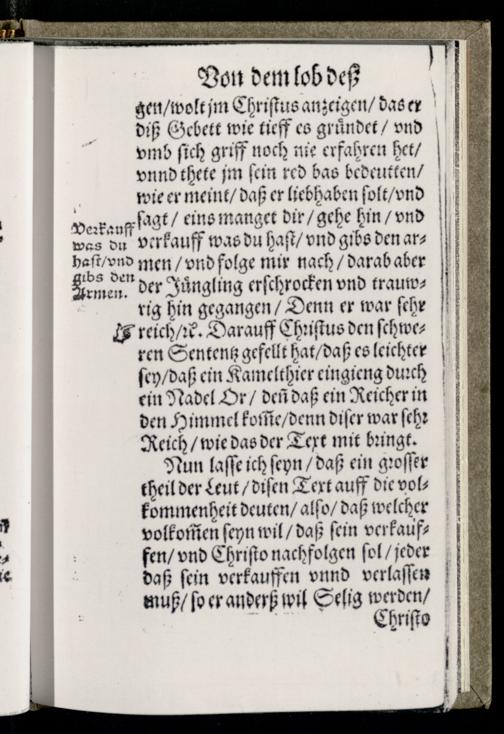 Von dem lob deß
gen/wolt jm Christus anzeigen/ das er
diß Gebett wie tieff es gründet/ vnd
vmb sich griff noch nie erfahren het/
vnnd thete jm sein red bas bedeutten/
wie er meint/ daß er liebhaben solt/vnd
sagt/ eins manget dir/ gehe hin/ vnd
verkauff was du hast/ vnd gibs den ar-
men/ vnd folge mir nach/ darab aber
der Jüngling erschrocken vnd trauw-
rig hin gegangen/ Denn er war sehr
reich/ꝛc. Darauff Christus den schwe-
ren Sententz gefellt hat/daß es leichter
sey/daß ein Kamelthier eingieng durch
ein Nadel Or/ deñ daß ein Reicher in
den Himmel kom̃e/denn diser war sehr
Reich/ wie das der Text mit bringt.
Nun lasse ich seyn/ daß ein grosser
theil der Leut/ disen Text auff die vol-
kommenheit deuten/ also/ daß welcher
volkom̃en seyn wil/ daß sein verkauf-
fen/ vnd Christo nachfolgen sol/ jeder
daß sein verkauffen vnnd verlassen
muß/ so er anderß wil Selig werden/
Christo
Verkauff
was du
hast/vnd
gibs den
Armen.